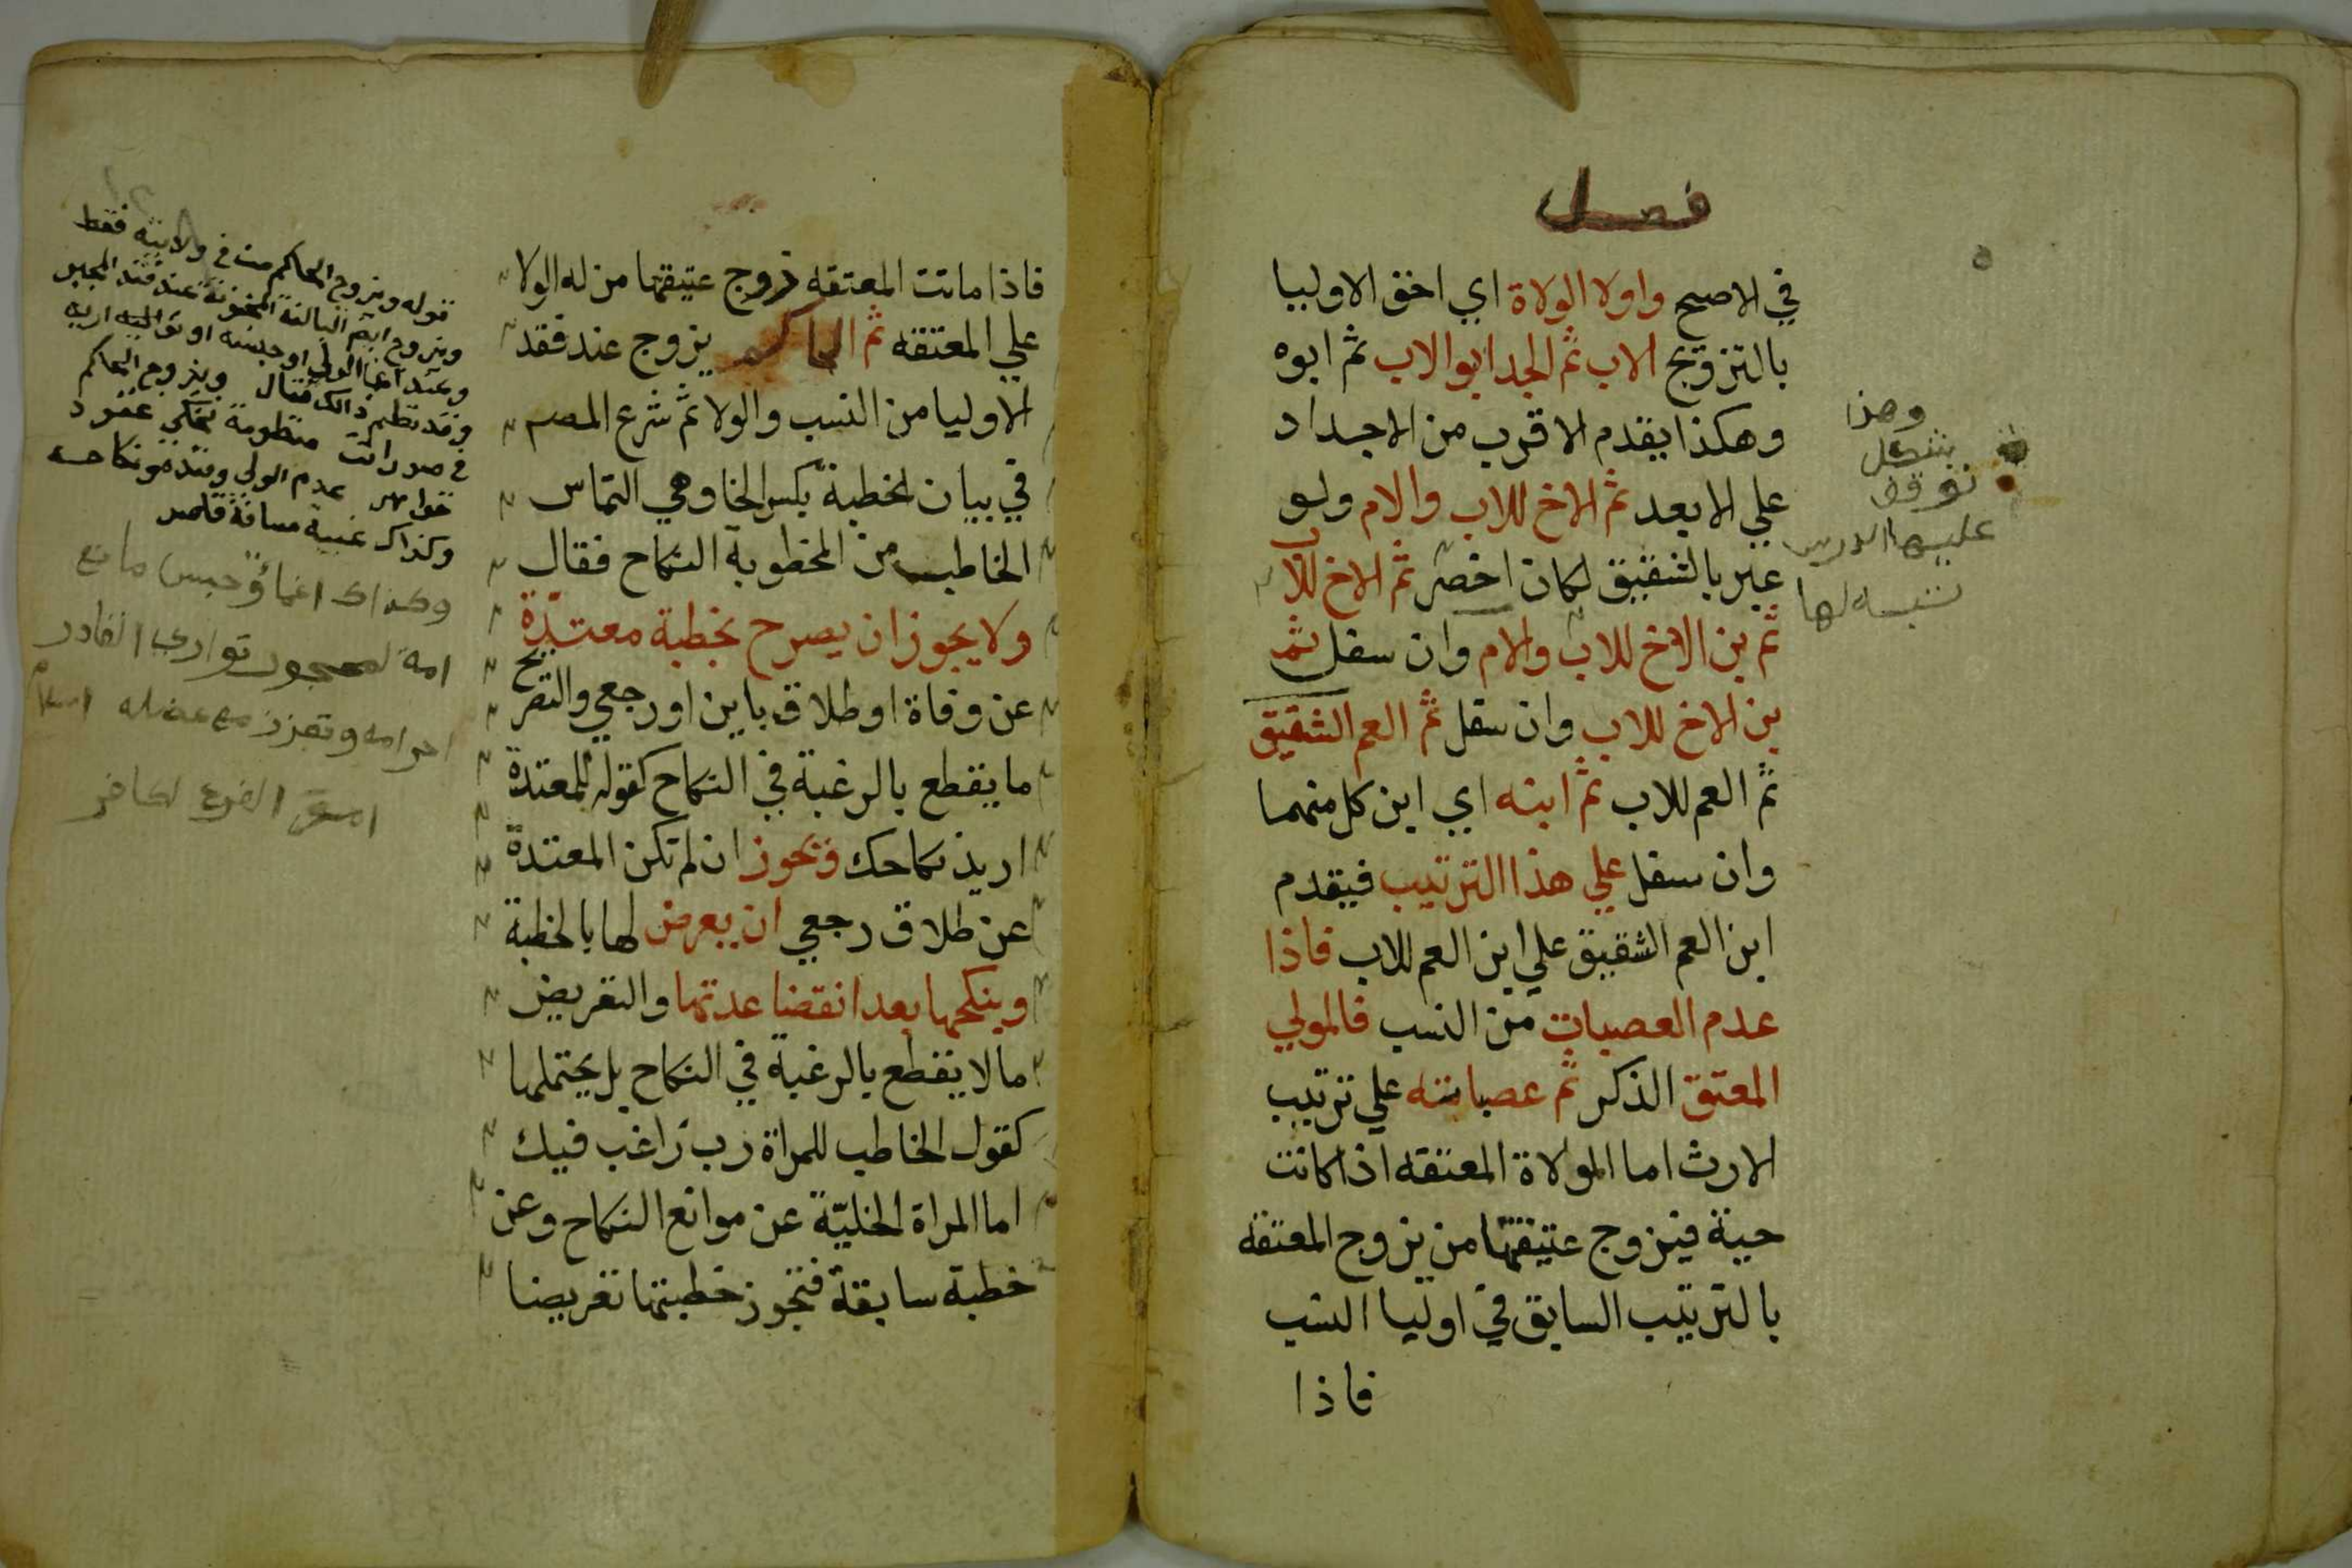 فصل
في الاصح واولا الولاة اي احق الاوليا
بالتزويج الاب ثم الجد ابو الاب ثم ابوه
وهكذا يقدم الاقرب من الاجداد
علي الابعد ثم الاخ للاب والام ولو
عبر بالشقيق لكان اخصر ثم الاخ للاب
ثم بن الاخ للاب والام وان سفل ثم
بن الاخ للاب وان سفل ثم العم الشقيق
ثم العم للاب ثم ابنه اي ابن كل منهما
وان سفل علي هذا الترتيب فيقدم
ابن العم الشقيق علي ابن العم للاب فاذا
عدم العصبات من النسب فالمولي
المعتق الذكر ثم عصباته علي ترتيب
الارث اما المولاة المعتقه اذا كانت
حية فيزوج عتيقتها من يزوج المعتقه
بالترتيب السابق في اوليا النسب
فاذا
وهذا
توقف
عليها
فاذا ماتت المعتقه زوج عتيقتها من له الولا
علي المعتقه ثم الحاكم يزوج عند فقد
الاوليا من النسب والولا ثم شرع المصم
في بيان الخطبة بكسر الخا وهي التماس
الخاطب من المخطوبة النكاح فقال
ولا يجوز ان يصرح بخطبة معتدة
عن وفاة او طلاق باين او رجعي والتصريح
ما يقطع بالرغبة في النكاح كقوله للمعتدة
اريد نكاحك ويجوز ان لم تكن المعتدة
عن طلاق رجعي ان يعرض لها بالخطبة
وينكحها بعد انقضا عدتها والتعريض
ما لا يقطع بالرغبة في النكاح بل يحتملها
كقول الخاطب للمراة رب راغب فيك
اما المراة الخليّة عن موانع النكاح وعن
خطبة سابقة فتجوز خطبتها تعريضا
قوله ويزوج الحاكم من في ولايته فقط
ويزوج ايم البالغة المجنونة عند فقد المجبر
وعند اغما الولي او حبسه او تواليه
وقد نظم ذالك فقال ويزوج الحاكم
في صور اتت منظومة تحكي عقود
جواهر عدم الولي وفقده ونكاحه
وكذاك غيبة مسافة قاصر
وكذاك اغماؤ حبس مانع
امة لمحجور تواري القادر
احرامه وتعزز مع عضله اسلام
الفرع لكافر